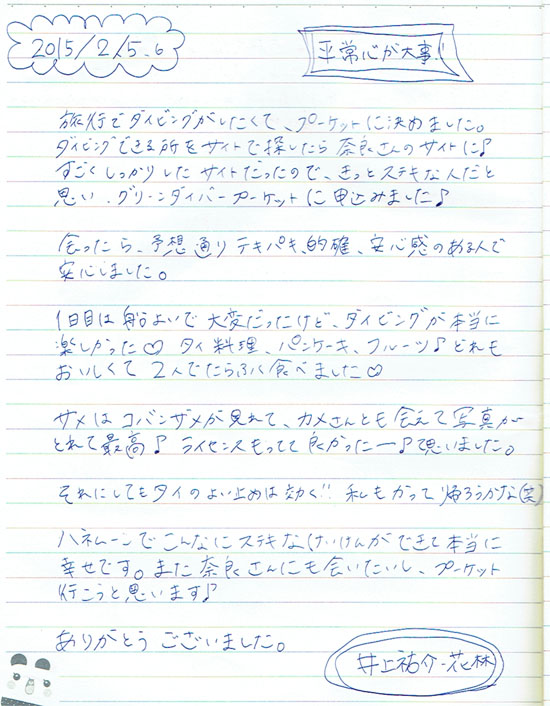 2015/2/5.6
平常心が大事!
旅行でダイビングがしたくて、プーケットに決めました。
ダイビングできる所をサイトで探したら奈良さんのサイトに♪
すごくしっかりしたサイトだったので、きっとステキな人だと
思い、グリーンダイバープーケットに申込みました♪
会ったら、予想通りテキパキ、的確、安心感のある人で
安心しました。
1日目は船よいで大変だったけど、ダイビングが本当に
楽しかった♡ タイ料理、パンケーキ、フルーツ♪どれも
おいしくて2人でたらふく食べました♡
サメはコバンザメが見れて、カメさんとも会えて写真が
とれて最高♪ ライセンスもってて良かったー♪て思いました。
それにしてもタイのよい止めは効く!! 私もかって帰ろうかな(笑)
ハネムーンでこんなにステキなけいけんができて本当に
幸せです。また奈良さんにも会いたいし、プーケット
行こうと思います♪
ありがとうございました。
井上祐介・花林